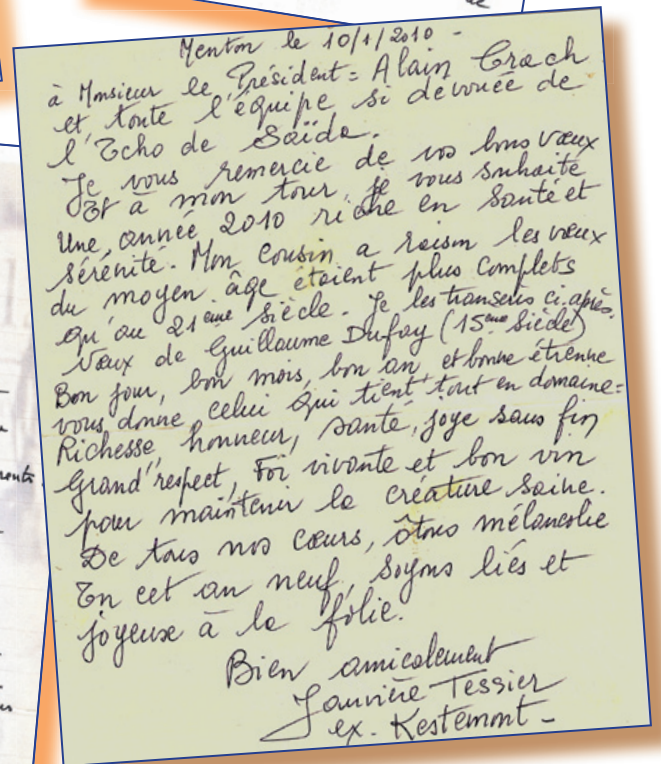 Menton le 10/1/2010 -
à Monsieur le Président = Alain Crach
et toute l'équipe si dévouée de
l'Echo de Saïda.
Je vous remercie de vos bons vœux
Et à mon tour, je vous souhaite
Une, année 2010 riche en Santé et
sérénité. Mon Cousin a raison les vœux
du moyen âge étaient plus complets
qu'au 21ème siècle. Je les transcris ci-après.
Vœux de Guillaume Dufay (15ème Siècle)
Bon jour, bon mois, bon an, et bonne étrenne
vous, donne, celui qui tient tout en domaine =
Richesse, honneur, santé, joye sans fin
Grand "respect, Foi vivante et bon vin
pour maintenir la créature saine.
De tous nos cœurs, ôtons mélancolie
En cet an neuf, soyons liés et
joyeux à la folie.
Bien amicalement
Janvière Tessier
ex. Kestemont -